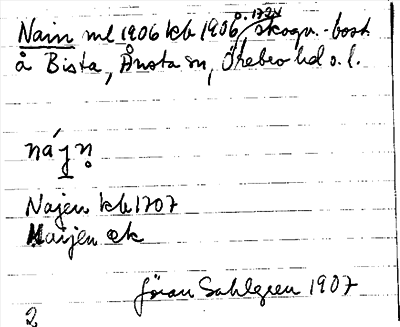 Nain ml 1906 kb 1906 o. 1724 skogv.-bost.
å Bista, Ånsta sn, Örebro hd o. l.
nájṇ
Najen kb 1707
Naijen ek
Jöran Sahlgren 1907
2